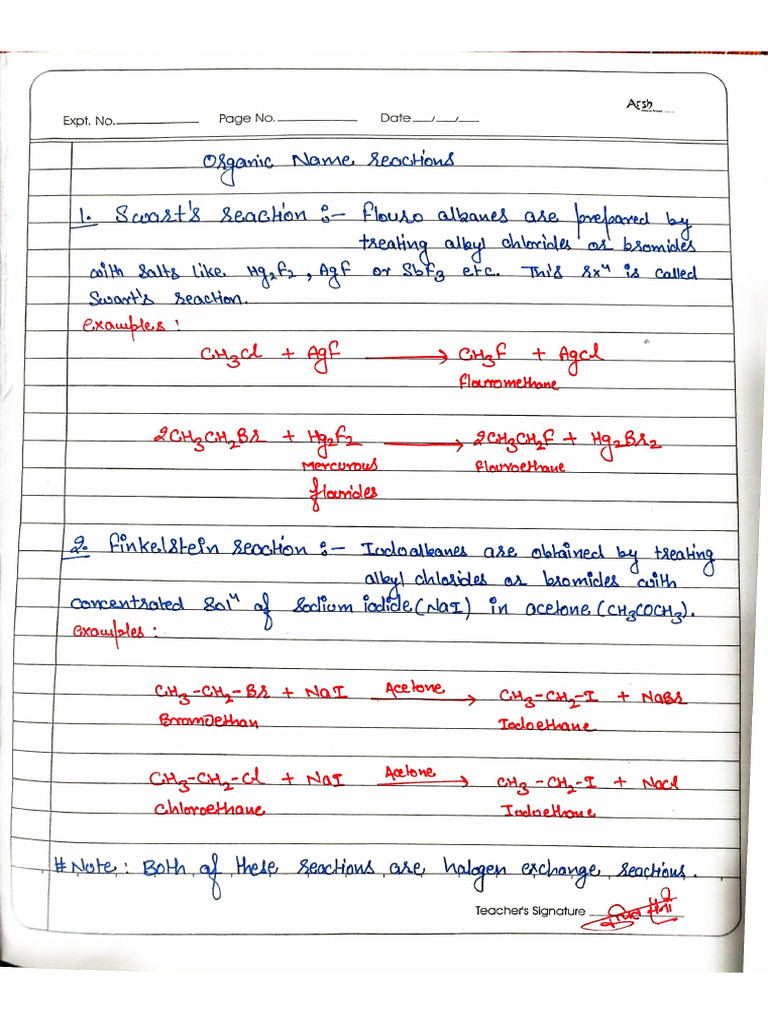 Arsh
Expt. No. Page No. Date / /
Organic Name reactions
1. Swart's reaction :- flouro alkanes are prepared by
treating alkyl chlorides or bromides
with salts like Hg₂F₂, AgF or SbF₃ etc. This rxⁿ is called
Swart's reaction.
Examples :
CH₃Cl + AgF ⟶ CH₃F + AgCl
flouromethane
2CH₃CH₂Br + Hg₂F₂ ⟶ 2CH₃CH₂F + Hg₂Br₂
Mercurous flouroethane
flourides
2. Finkelstein reaction :- Iodoalkanes are obtained by treating
alkyl chlorides or bromides with
concentrated solⁿ of sodium iodide (NaI) in acetone (CH₃COCH₃).
Examples :
CH₃-CH₂-Br + NaI Acetone ⟶ CH₃-CH₂-I + NaBr
Bromoethan Iodoethane
CH₃-CH₂-Cl + NaI Acetone ⟶ CH₃-CH₂-I + NaCl
Chloroethane Iodoethane
# Note : Both of these reactions are halogen exchange reactions.
Teacher's Signature